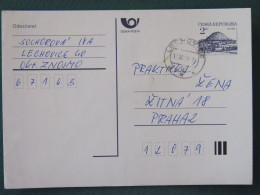 Odesílatel:
SUCHOROVÁ IVA
LECHOVICE 40
OKR. ZNOJMO
67163
ČESKÁ REPUBLIKA
2
PRAKTICKÁ
ŽENA
ŽITNÁ 18
PRAHA 2
12879